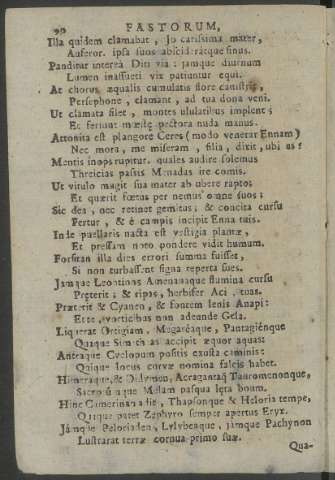 90 FASTORUM,
Illa quidem clamabat, Jo carissima mater,
Auferor. ipsa suos abscideratque sinus.
Panditur interea Diti via: jamque diurnum
Lumen inassueti vix patiuntur equi.
At chorus æqualis cumulatis flore canistris,
Persephone, clamant, ad tua dona veni.
Ut clamata silet, montes ululatibus implent;
Et feriunt mæstæ pectora nuda manus.
Attonita est plangore Ceres (modo venerat Ennam)
Nec mora, me miseram, filia, dixit, ubi es?
Mentis inops rupitur. quales audire solemus
Threicias passis Mænadas ire comis.
Ut vitulo mugit sua mater ab ubere rapto;
Et quærit fœtus per nemus omne suos:
Sic dea, nec retinet gemitus; & concita cursu
Fertur, & è campis incipit Enna tuis.
Inde puellaris nacta est vestigia plantæ,
Et pressam noto pondere vidit humum.
Forsitan illa dies errori summa fuisset,
Si non turbassent signa reperta sues.
Jamque Leontinos Amenanaque flumina cursu
Præterit; & ripas, herbifer Aci, tuas.
Præterit & Cyanen, & fontem lenis Anapi:
Et te, vorticibus non adeunde Gela.
Liquerat Ortigiam, Megareaque, Pantagienque
Quaque Simæthæas accipit æquor aquas:
Antraque Cyclopum positis exusta caminis:
Quique locus curvæ nomina falcis habet.
Himeraque, & Didymen, Acragantaq; Tauromenonque,
Sacrorumque Melam pascua læta boum.
Hinc Camerinan adit, Thapsonque & Heloria tempe,
Quaque patet Zephyro semper apertus Eryx.
Jamque Peloriaden, Lylybeaque, jamque Pachynon
Lustrarat terræ cornua primo suæ.
Qua-